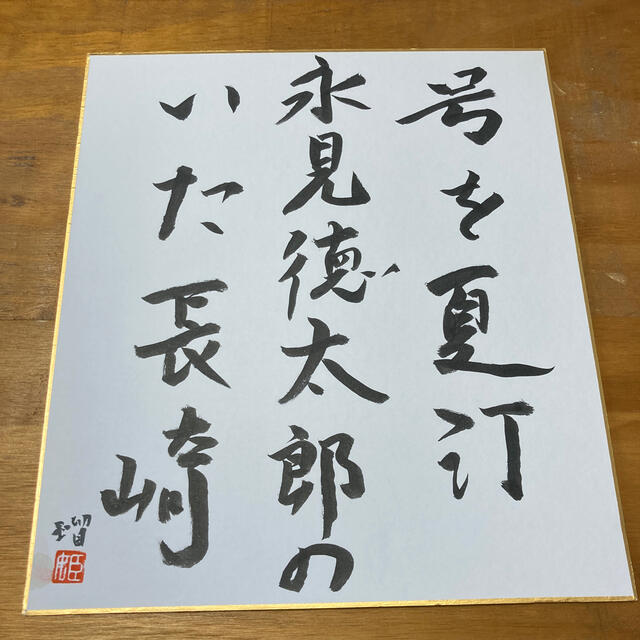 号を夏汀
永見徳太郎の
いた長崎